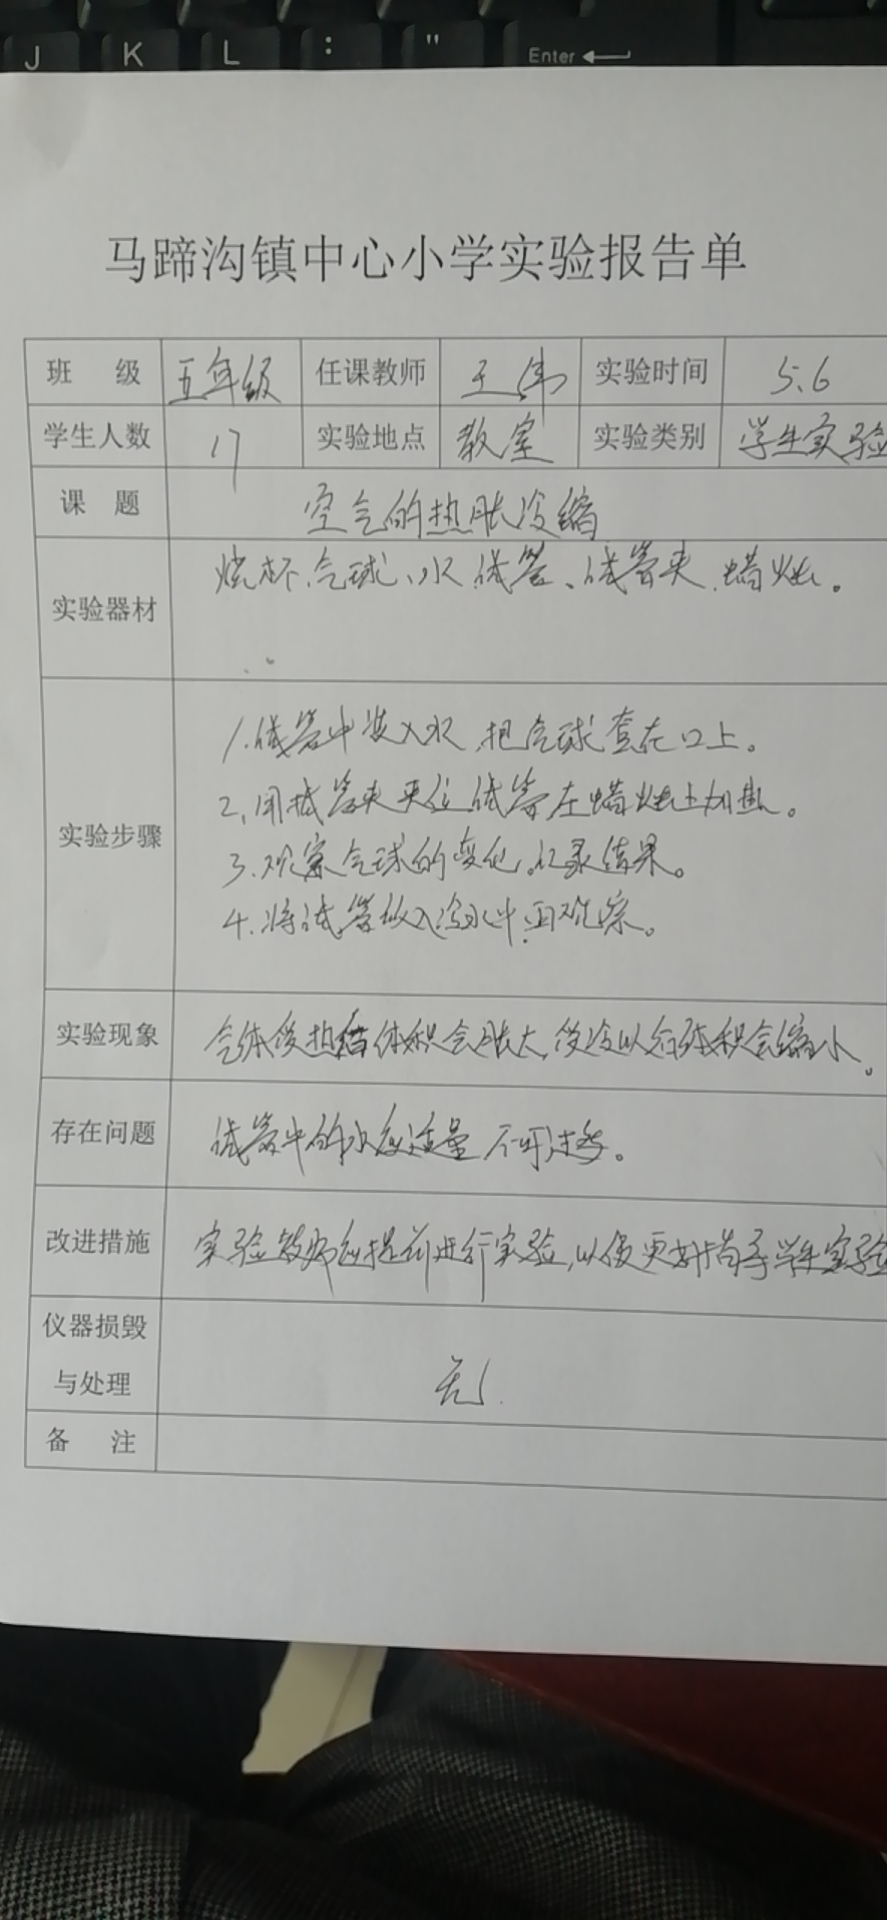 J K L : " Enter
马蹄沟镇中心小学实验报告单
班 级 五年级 任课教师 王伟 实验时间 5.6
学生人数 17 实验地点 教室 实验类别 学生实验
课 题 空气的热胀冷缩
实验器材 烧杯、气球、水、试管、试管夹、蜡烛。
实验步骤
1.试管中装入水,把气球套在口上。
2.用试管夹夹住试管在蜡烛上加热。
3.观察气球的变化,记录结果。
4.将试管放入冷水中,再观察。
实验现象 气体受热体积会胀大,受冷以后体积会缩小。
存在问题 试管中的水应适量不可过多。
改进措施 实验教师应提前进行实验,以便更好指导学生实验
仪器损毁
与处理 无
备 注